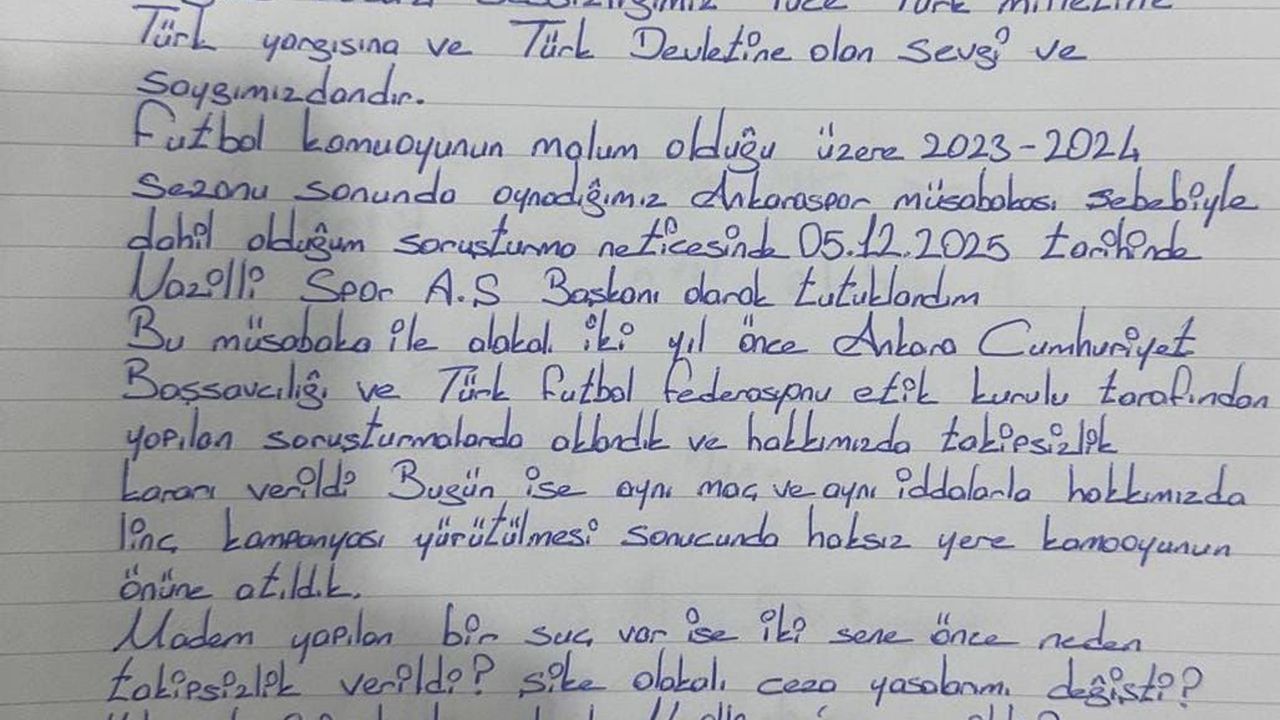 Yüce Türk milletine
Türk yargısına ve Türk Devletine olan sevgi ve
saygımızdandır.
Futbol kamuoyunun malum olduğu üzere 2023-2024
sezonu sonunda oynadığımız Ankaraspor müsabakası sebebiyle
dahil olduğum soruşturma neticesinde 05.12.2025 tarihinde
Nazilli Spor A.S Başkanı olarak tutuklandım
Bu müsabaka ile alakalı iki yıl önce Ankara Cumhuriyet
Başsavcılığı ve Türk futbol federasyonu etik kurulu tarafından
yapılan soruşturmalarda aklandık ve hakkımızda takipsizlik
kararı verildi Bugün ise aynı maç ve aynı iddalarla hakkımızda
linç kampanyası yürütülmesi sonucunda haksız yere kamooyunun
önüne atıldık.
Madem yapılan bir suç var ise iki sene önce neden
takipsizlik verildi? şike alakalı ceza yasalarımı değişti?